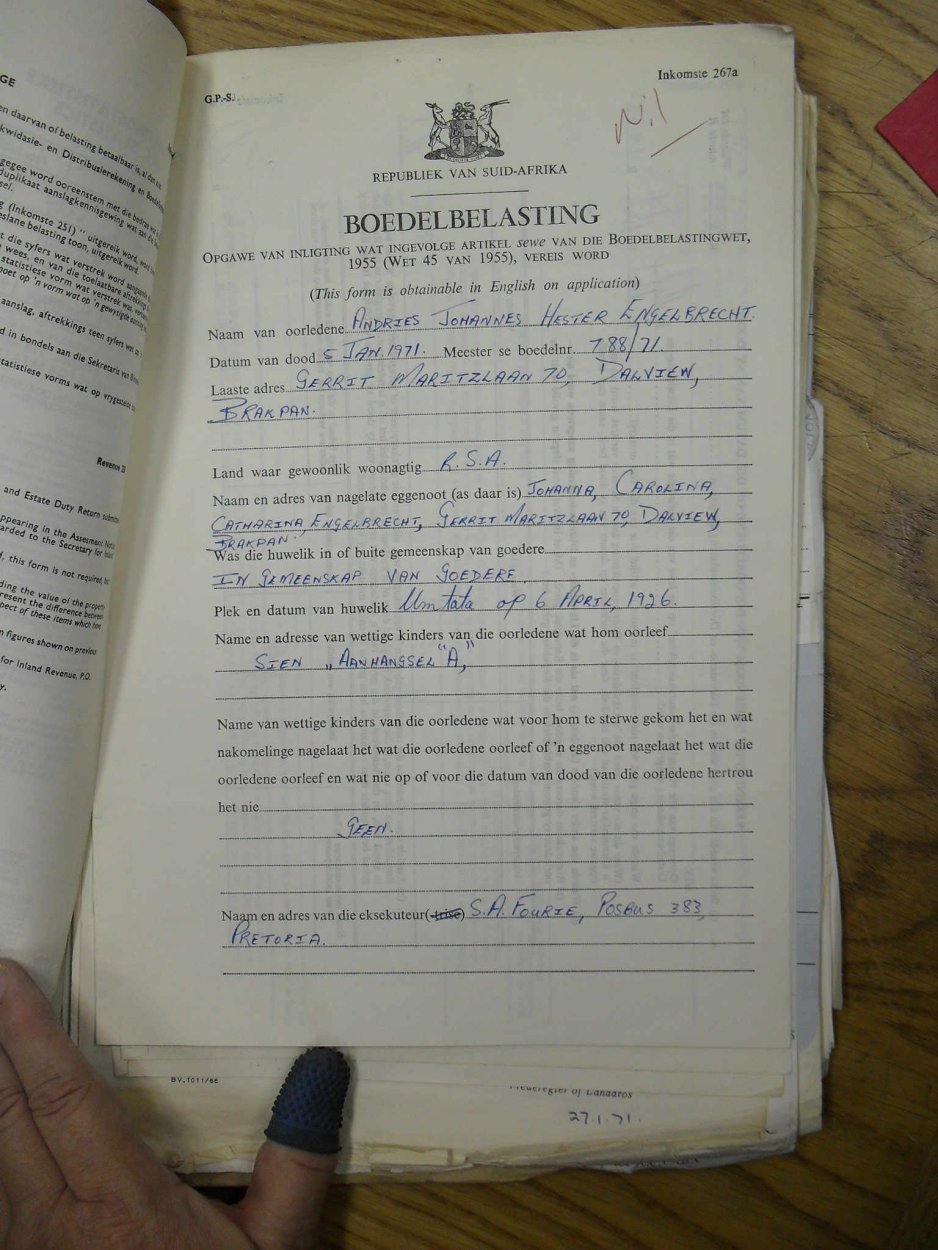 GE
en daarvan of belasting betaalbaar is, al dan
kwidasie- en Distribusierekening en Boedel
gegee word ooreenstem met die bedrae wat
duplikaat aanslagkennisgewing wat aan die
sel.
g (Inkomste 251) " uitgereik word, word
eslane belasting toon, uitgereik word.
t die syfers wat verstrek word aangaande
wees, en van die toelaatbare aftrekkings
statistiese vorm wat verstrek was verskil
moet op 'n vorm wat op 'n gewysigde aanslag
aanslag, aftrekkings teen syfers wat op
d in bondels aan die Sekretaris van Binne
statistiese vorms wat op vrygestelde
Revenue
and Estate Duty Return submitted
appearing in the Assessment Notice
arded to the Secretary for Inland
, this form is not required, but
ding the value of the property
resent the difference between
pect of these items which have
n figures shown on previous
for Inland Revenue, P.O.
y.
G.P.-S.
Inkomste 267a
Nil
REPUBLIEK VAN SUID-AFRIKA
BOEDELBELASTING
OPGAWE VAN INLIGTING WAT INGEVOLGE ARTIKEL sewe VAN DIE BOEDELBELASTINGWET,
1955 (WET 45 VAN 1955), VEREIS WORD
(This form is obtainable in English on application)
Naam van oorledene ANDRIES JOHANNES HESTER ENGELBRECHT.
Datum van dood 5 JAN. 1971. Meester se boedelnr. 788/71.
Laaste adres GERRIT MARITZLAAN 70, DALVIEW,
BRAKPAN.
Land waar gewoonlik woonagtig R.S.A.
Naam en adres van nagelate eggenoot (as daar is) JOHANNA, CAROLINA,
CATHARINA ENGELBRECHT, GERRIT MARITZLAAN 70, DALVIEW,
BRAKPAN.
Was die huwelik in of buite gemeenskap van goedere
IN GEMEENSKAP VAN GOEDERE.
Plek en datum van huwelik Umtata op 6 APRIL, 1926.
Name en adresse van wettige kinders van die oorledene wat hom oorleef
SIEN „AANHANGSEL "A"
Name van wettige kinders van die oorledene wat voor hom te sterwe gekom het en wat
nakomelinge nagelaat het wat die oorledene oorleef of 'n eggenoot nagelaat het wat die
oorledene oorleef en wat nie op of voor die datum van dood van die oorledene hertrou
het nie
GEEN.
Naam en adres van die eksekuteur(-trise) S.A. FOURIE, POSBUS 383,
PRETORIA.
BV.1011/66
27.1.71.